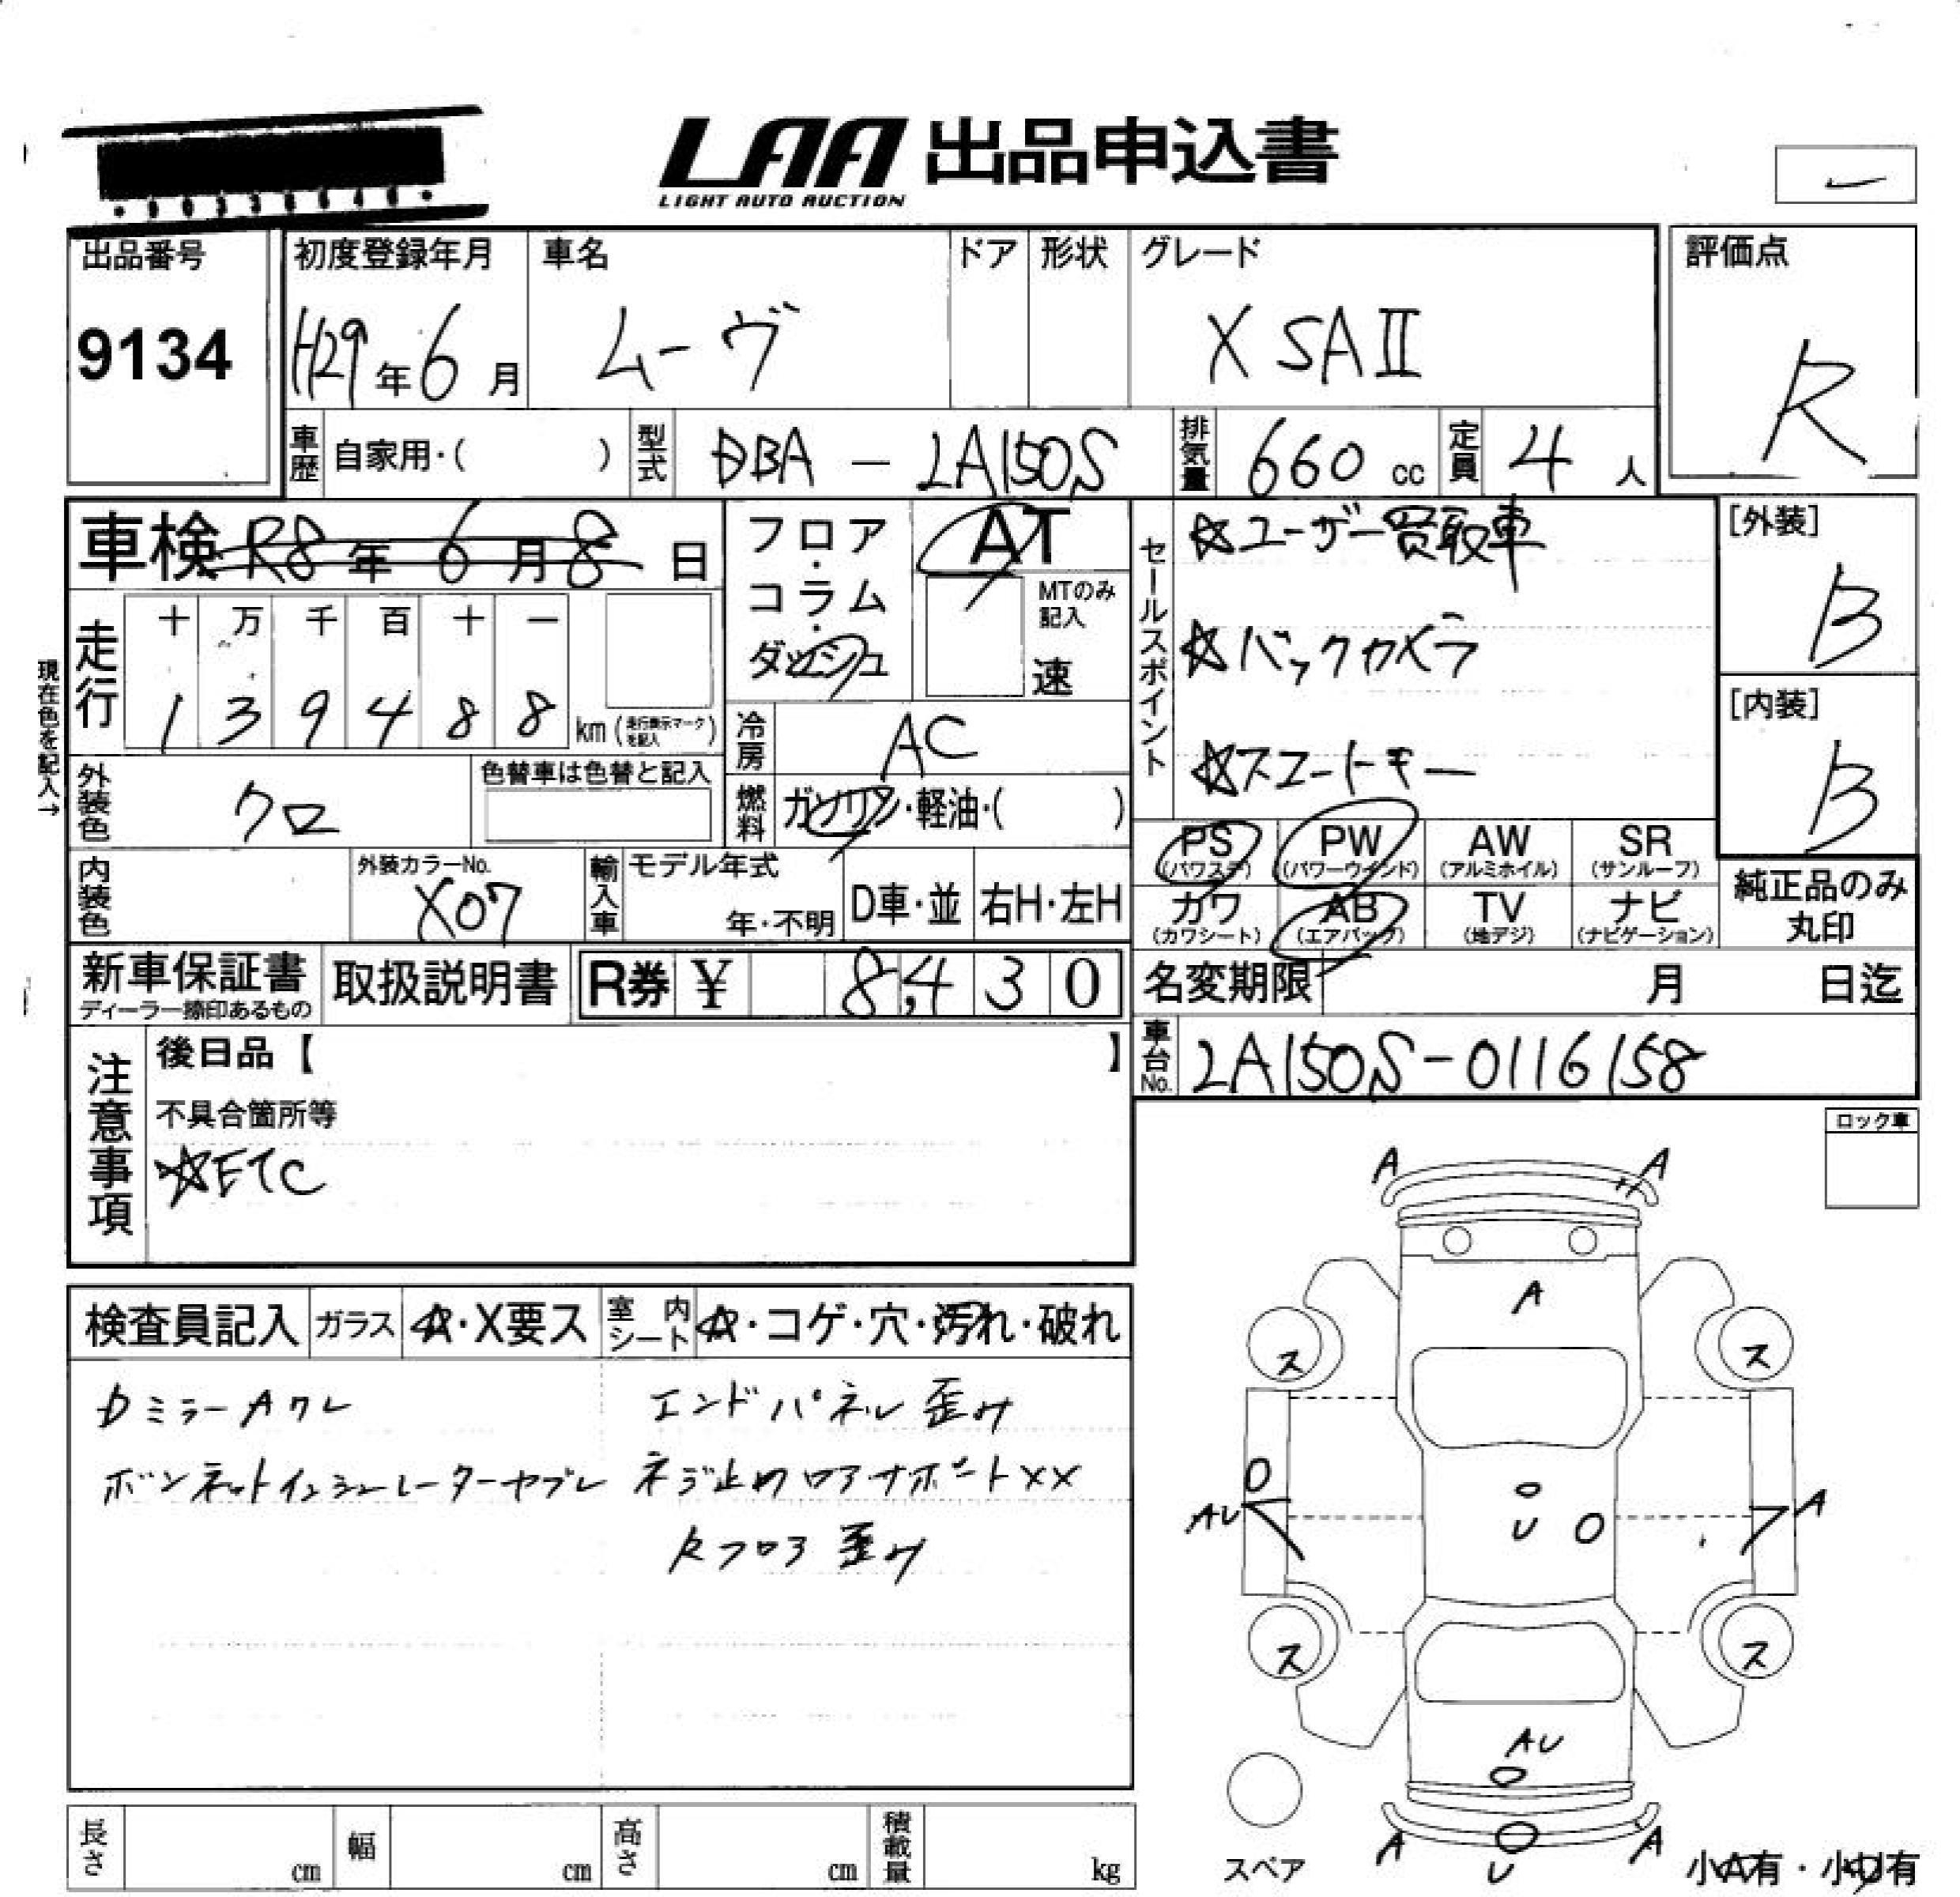 LAA 出品申込書
LIGHT AUTO AUCTION
出品番号
9134
初度登録年月
H29年6月
車名
ムーヴ
ドア
形状
グレード
X SAⅡ
評価点
R
車歴
自家用・( )
型式
DBA － LA150S
排気量
660 cc
定員
4 人
車検 R8年6月8日
走行
十 万 千 百 十 一
1 3 9 4 8 8 km (走行表示マークを記入)
現在色を記入→
外装色
クロ
色替車は色替と記入
内装色
外装カラーNo.
X07
フロア・コラム・ダッシュ
AT
MTのみ記入
速
冷房
AC
燃料
ガソリン・軽油・( )
輸入車
モデル年式
年・不明
D車・並
右H・左H
セールスポイント
☆ユーザー買取車
☆バックカメラ
☆スマートキー
[外装]
B
[内装]
B
PS
(パワステ)
PW
(パワーウインド)
AW
(アルミホイル)
SR
(サンルーフ)
カワ
(カワシート)
AB
(エアバック)
TV
(地デジ)
ナビ
(ナビゲーション)
純正品のみ
丸印
新車保証書
ディーラー捺印あるもの
取扱説明書
R券 ¥ 8,430
名変期限 月 日迄
車台No.
LA150S-0116158
注意事項
後日品【 】
不具合箇所等
☆ETC
ロック車
検査員記入
ガラス
A・X要ス
室内シート
A・コゲ・穴・汚れ・破れ
Dミラー Aワレ
ボンネットインシュレーターヤブレ
エンドパネル歪み
ネジ止めロアサポートXX
Rフロア歪み
A A
A
ス ス
AU
A
U
ス ス
AU
A A
U
スペア
小A有・小U有
長さ cm
幅 cm
高さ cm
積載量 kg